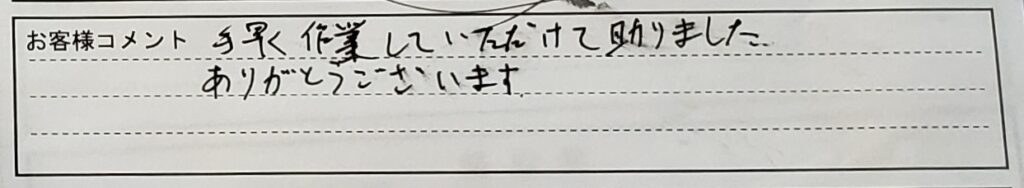 お客様コメント 手早く作業していただけて助りました
ありがとうございます